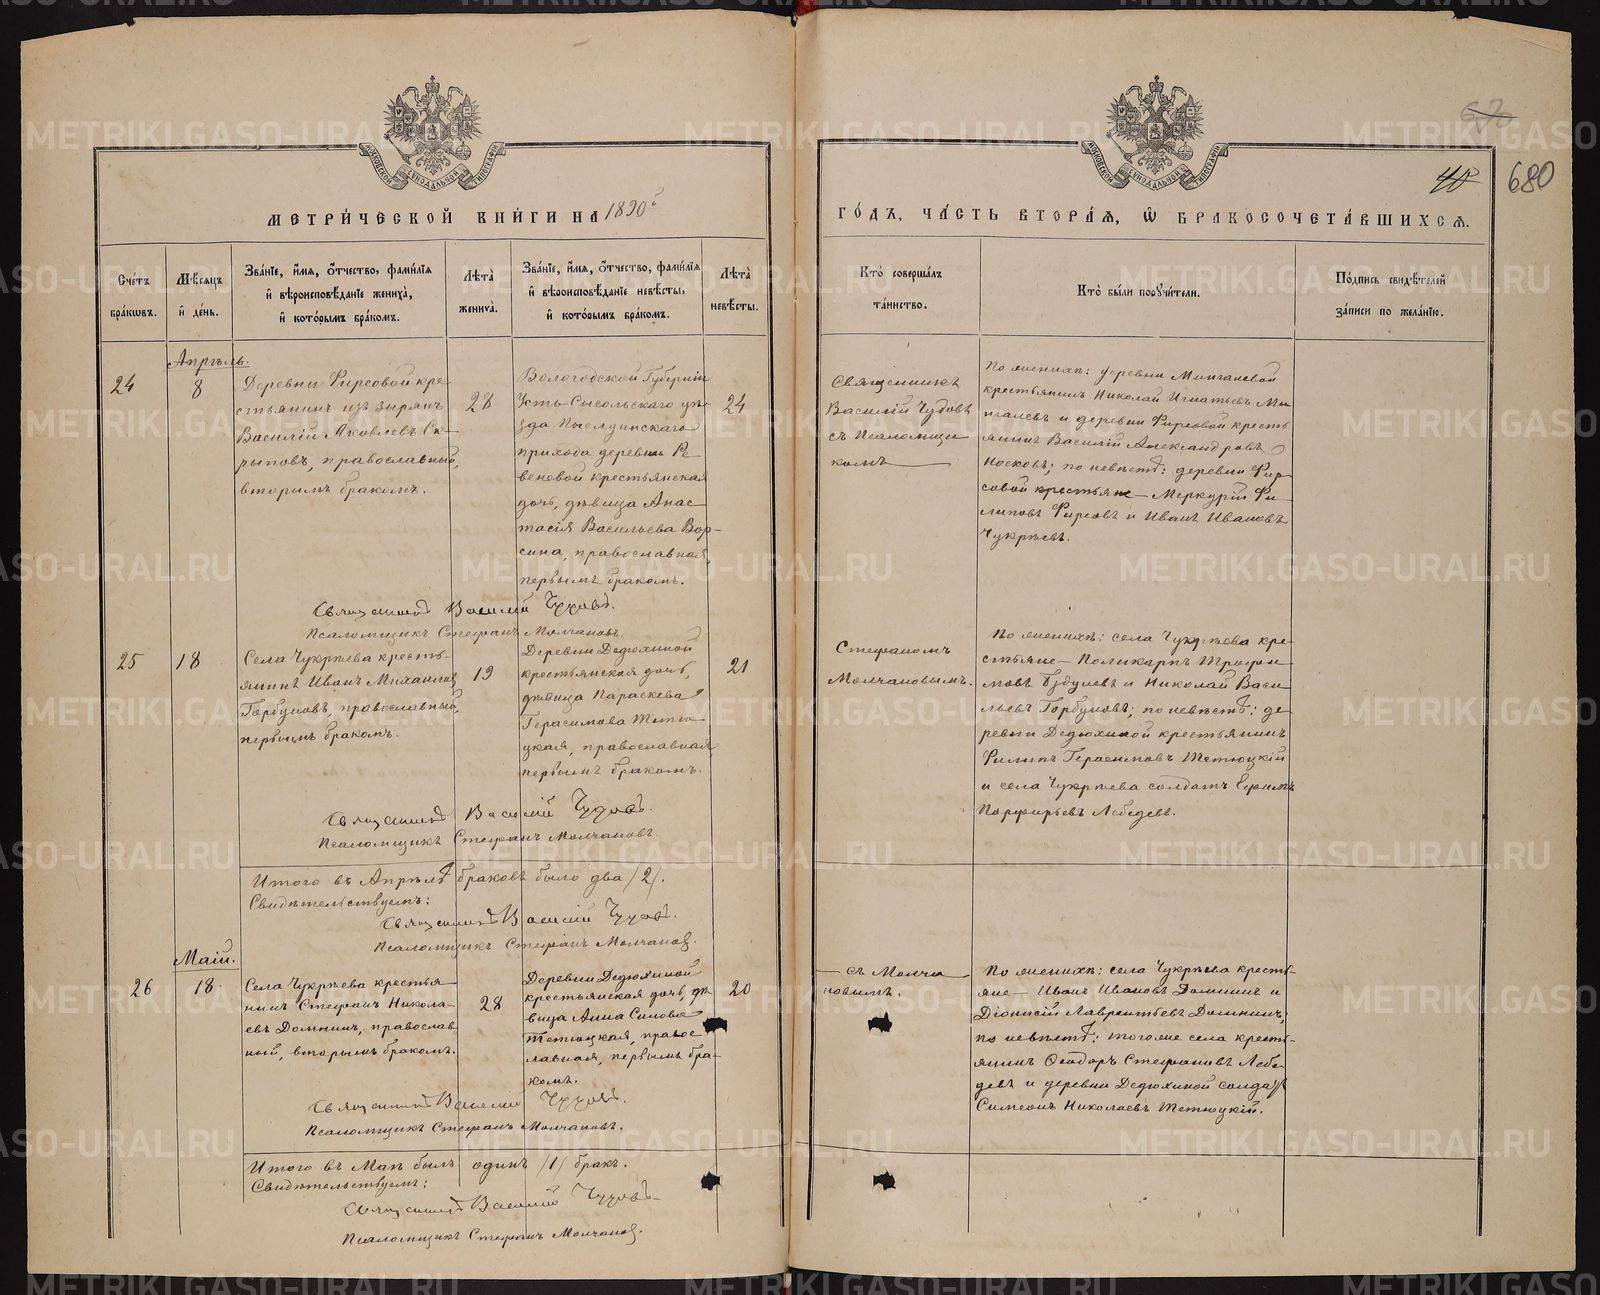 МЕТРИ́ЧЕСКОЙ КНИ́ГИ НА 1890й
ГО́ДЪ, ЧА́СТЬ ВТОРА́Я, Ѿ БРАКОСОЧЕТА́ВШИХСЯ.
680
Сче́тъ бра́кѡвъ.
Мѣ́сяцъ и҆ де́нь.
Зва́нїе, и҆́мя, ѻ҆́тчество, фами́лїя
и҆ вѣроисповѣ́данїе жениха̀,
и҆ кото́рымъ бра́комъ.
Лѣ́та̀ жениха̀.
Зва́нїе, и҆́мя, ѻ҆́тчество, фами́лїя
и҆ вѣроисповѣ́данїе невѣ́сты,
и҆ кото́рымъ бра́комъ.
Лѣ́та̀ невѣ́сты.
Кто̀ соверша́лъ
та́инство.
Кто̀ бы́ли поручи́тели.
По́дпись свидѣ́телей
за́писи по жела́нїю.
Апрѣль.
24
8
Деревни Фирсовой кре
стьянинъ изъ зырянъ
Василій Яковлевъ Ск-
рыповъ, православный,
вторымъ бракомъ.
28
Вологодской Губерніи
Усть-Сысольскаго уѣз-
да
прихода деревни Ре
веновой крестьянская
дочь, дѣвица Анас
тасія Васильева Вор-
сина, православная,
первымъ бракомъ.
24
Священникъ
Василій Чудовъ
съ Псаломщи
комъ
По женихѣ: деревни Мингалевой
крестьянинъ Николай Игнатьевъ Ми
нгалевъ и деревни Фирсовой кресть
янинъ Василій Александровъ
Носковъ; по невѣстѣ: деревни Фир
совой крестьяне — Меркурій Фи
липовъ Фирсовъ и Иванъ Ивановъ
Чукрѣевъ.
Священникъ Василій Чудовъ.
Псаломщикъ Стефанъ Молчановъ.
25
18
Села Чукрѣева кресть-
янинъ Иванъ Михаиловъ
Горбуновъ, православный,
первымъ бракомъ.
19
Деревни Дедюхиной
крестьянская дочь,
дѣвица Параскева
Герасимова Тетю
цкая, православная
первымъ бракомъ.
21
Стефаномъ
Молчановымъ.
По женихѣ: села Чукрѣева кре-
стьяне — Поликарпъ Трофи
мовъ и Николай Васи
льевъ Горбуновъ; по невѣстѣ: де
ревни Дедюхиной крестьянинъ
Филипъ Герасимовъ Тетюцкій
и села Чукрѣева солдатъ Ефимъ
Порфирьевъ Лебедевъ.
Священникъ Василій Чудовъ.
Псаломщикъ Стефанъ Молчановъ.
Итого въ Апрѣлѣ браковъ было два /2/.
Свидѣтельствуемъ:
Священникъ Василій Чудовъ.
Псаломщикъ Стефанъ Молчановъ.
Маій.
26
18.
Села Чукрѣева крестья
нинъ Стефанъ Никола-
евъ Домнинъ, православ
ный, вторымъ бракомъ.
28
Деревни Дедюхиной
крестьянская дочь, дѣ
вица Анна Силова
Тетюцкая, правос
лавная, первымъ бра-
комъ.
20
— съ Молча
новымъ.
По женихѣ: села Чукрѣева кресть-
яне — Иванъ Ивановъ Домнинъ и
Діонисій Лаврентьевъ Домнинъ,
по невѣстѣ: того же села кресть-
янинъ Ѳеодоръ Стефановъ Лебе-
девъ и деревни Дедюхиной солдатъ
Симеонъ Николаевъ Тетюцкій.
Священникъ Василій Чудовъ.
Псаломщикъ Стефанъ Молчановъ.
Итого въ Маѣ былъ одинъ /1/ бракъ.
Свидѣтельствуемъ:
Священникъ Василій Чудовъ
Псаломщикъ Стефанъ Молчановъ.
METRIKI.GASO-URAL.RU